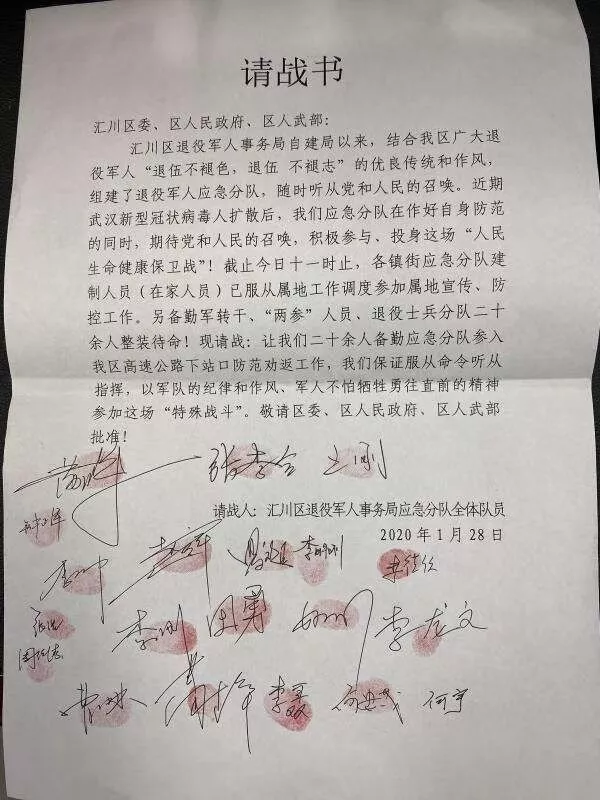 请战书
汇川区委、区人民政府、区人武部：
汇川区退役军人事务局自建局以来，结合我区广大退
役军人“退伍不褪色，退伍 不褪志”的优良传统和作风，
组建了退役军人应急分队，随时听从党和人民的召唤。近期
武汉新型冠状病毒人扩散后，我们应急分队在作好自身防范
的同时，期待党和人民的召唤，积极参与、投身这场“人民
生命健康保卫战”！截止今日十一时止，各镇街应急分队建
制人员（在家人员）已服从属地工作调度参加属地宣传、防
控工作。另备勤军转干、“两参”人员、退役士兵分队二十
余人整装待命！现请战：让我们二十余人备勤应急分队参入
我区高速公路下站口防范劝返工作，我们保证服从命令听从
指挥，以军队的纪律和作风、军人不怕牺牲勇往直前的精神
参加这场“特殊战斗”。敬请区委、区人民政府、区人武部
批准！
请战人：汇川区退役军人事务局应急分队全体队员
2020 年 1 月 28 日
李刚
田勇
李龙文
何宇